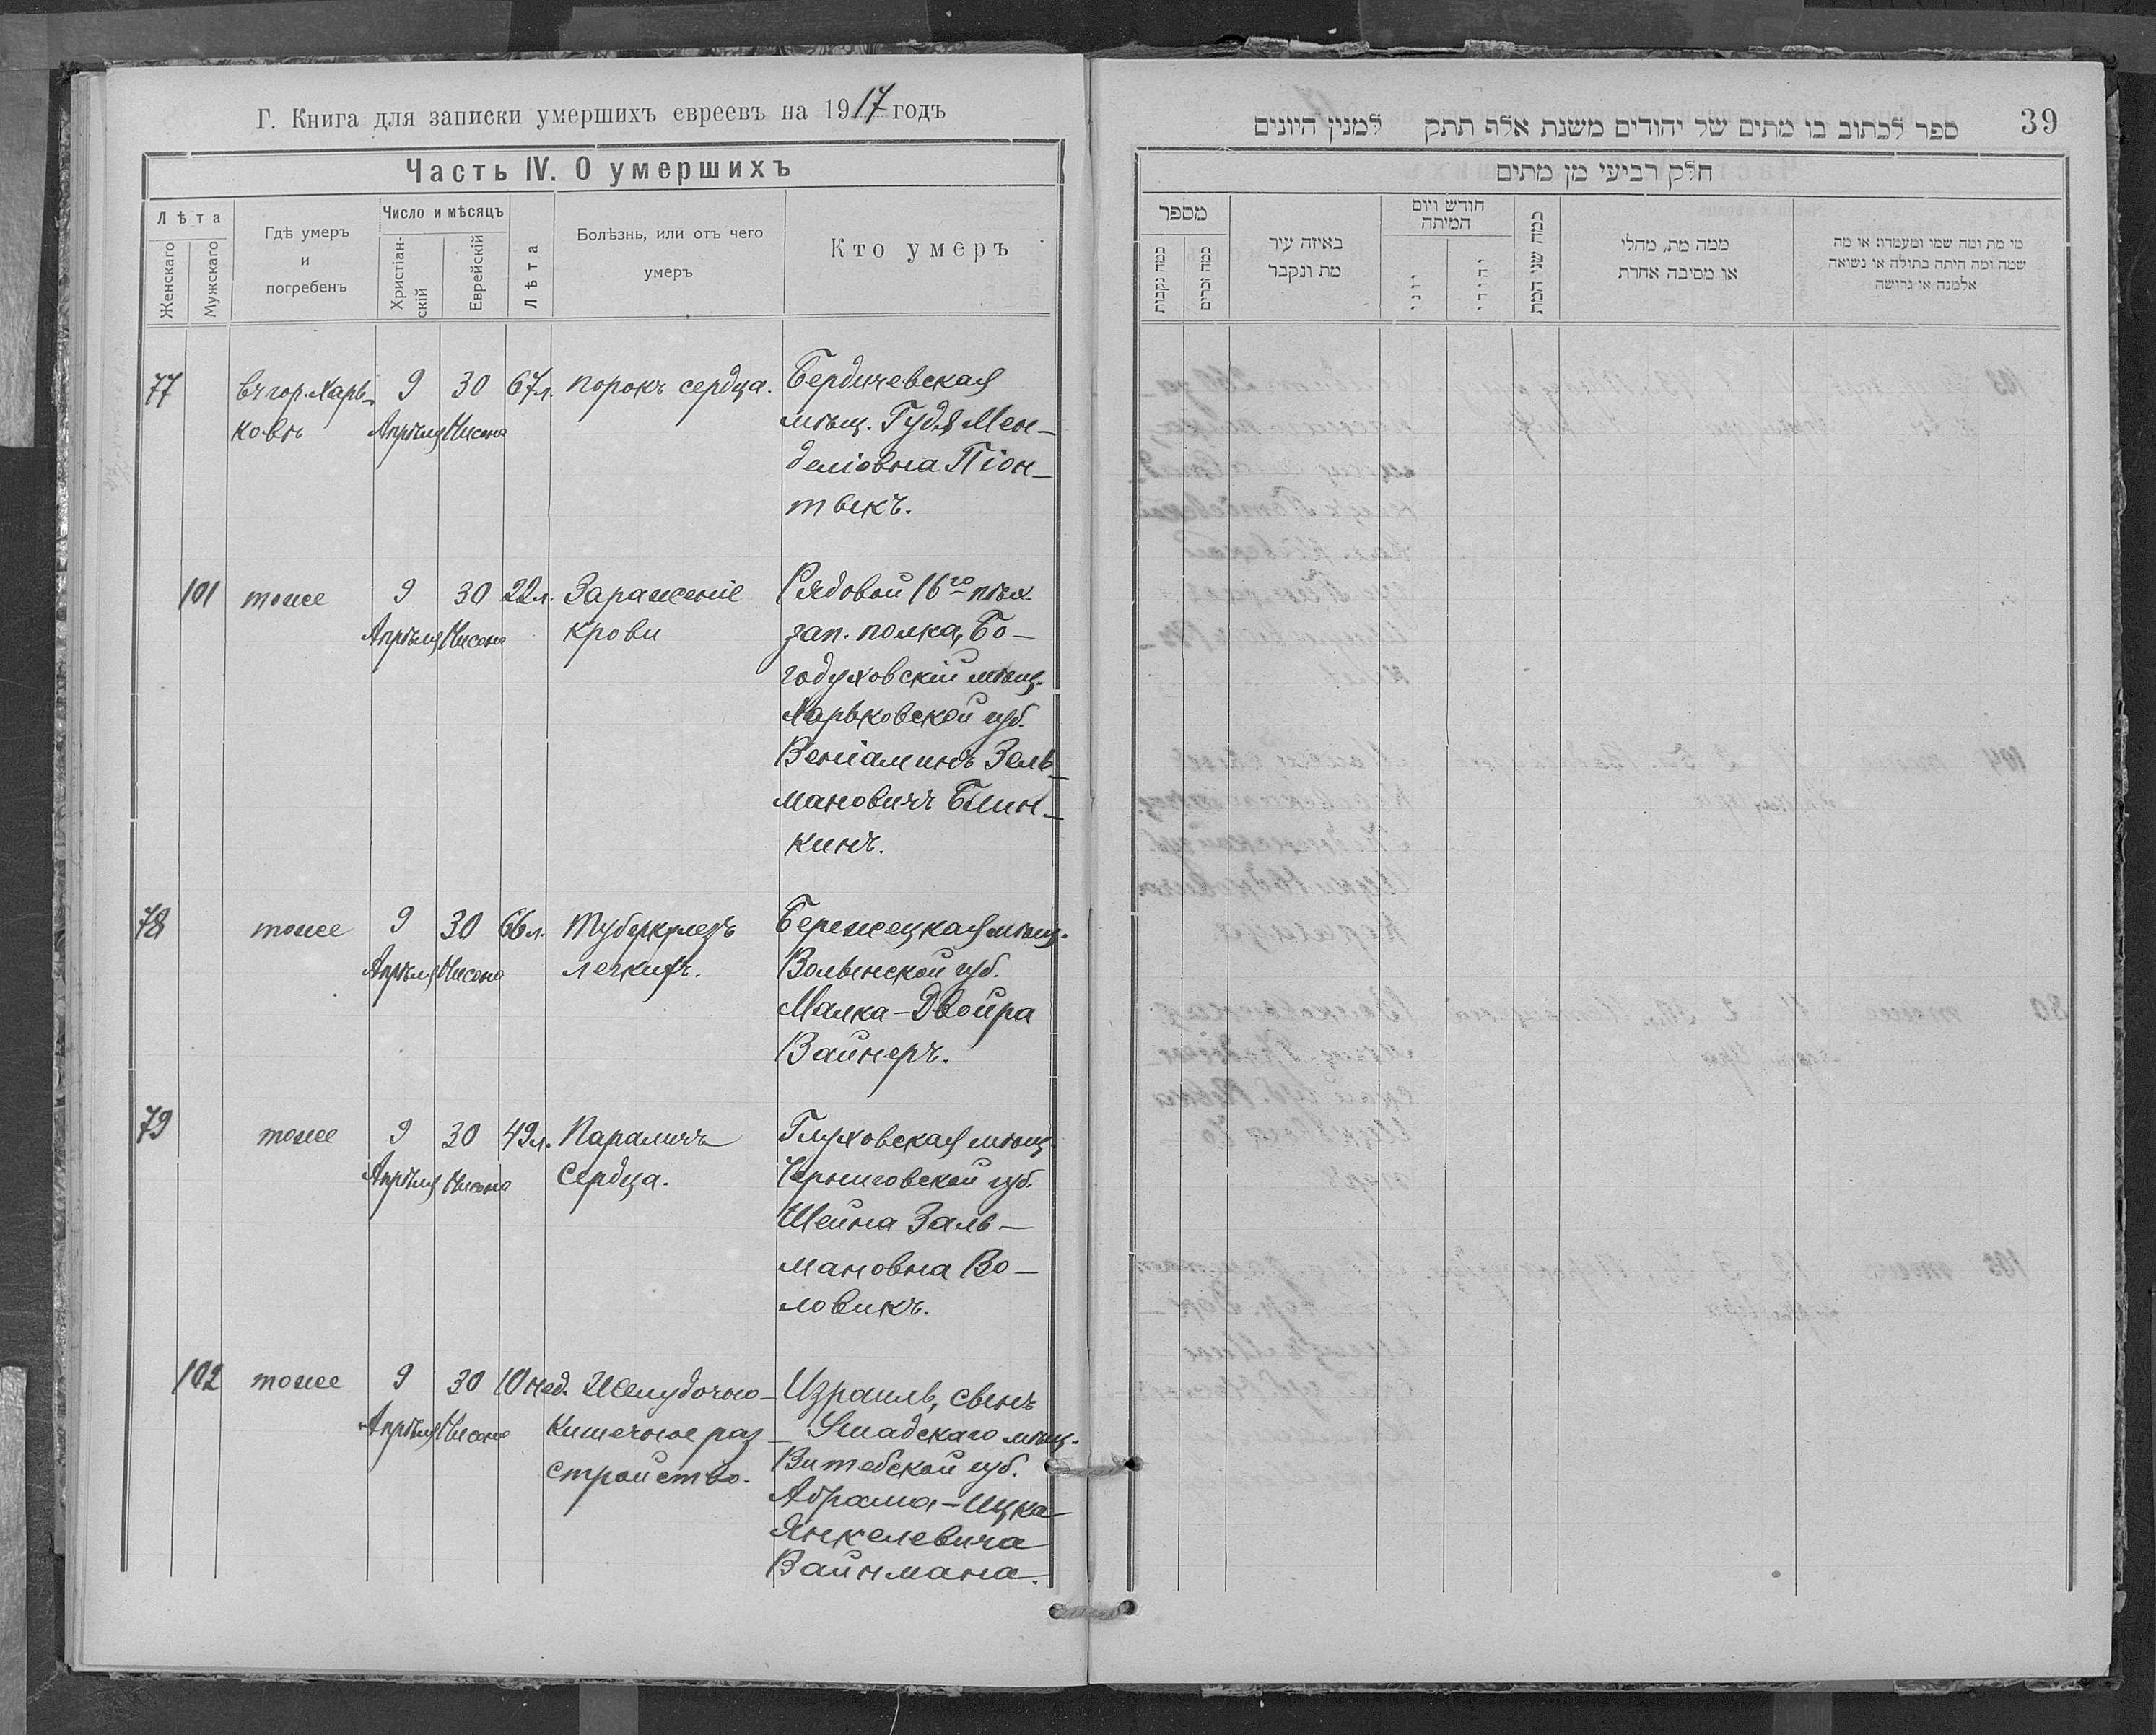 Г. Книга для записки умершихъ евреевъ на 1917 годъ
Часть IV. О умершихъ
Лѣта
Женскаго
Мужскаго
Гдѣ умеръ
и
погребенъ
Число и мѣсяцъ
Христіан-
скій
Еврейскій
Лѣта
Болѣзнь, или отъ чего
умеръ
Кто умеръ
77 въ гор. Харь- 9 30 67 л. порокъ сердца. Бердичевская
ковѣ Апрѣля Нисона мѣщ. Гудя Мен-
деліовна Піон-
твекъ.
101 тоже 9 30 22 л. Зараженіе Рядовой 16го пѣх.
Апрѣля Нисона крови зап. полка, Бо-
годуховскій мѣщ.
Харьковской губ.
Веніаминъ Зель-
мановичъ Блин-
кинъ.
78 тоже 9 30 66 л. Туберкулезъ Бережецкая мѣщ.
Апрѣля Нисона легкихъ. Волынской губ.
Малка-Двойра
Вайнеръ.
79 тоже 9 30 49 л. Параличъ Глуховская мѣщ.
Апрѣля Нисона Сердца. Черниговской губ.
Шейна Заль-
мановна Во-
ловикъ.
102 тоже 9 30 10 нед. Желудочно- Израиль, сынъ
Апрѣля Нисона кишечное раз- мѣщ.
стройство. Витебской губ.
Абрама-Ицка
Янкелевича
Вайнмана.
39
ספר לכתוב בו מתים של יהודים משנת אלף תתק למנין היונים
חלק רביעי מן מתים
מספר
כמה נקבות
כמה זכרים
באיזה עיר
מת ונקבר
חודש ויום
המיתה
יוני
יהודי
כמה שני המת
ממה מת, מחלי
או מסיבה אחרת
מי מת ומה שמו ומעמדו: או מה
שמה ומה היתה בתולה או נשואה
אלמנה או גרושה